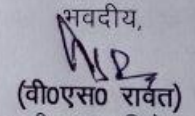 भवदीय,
(वी0एस0 रावत)